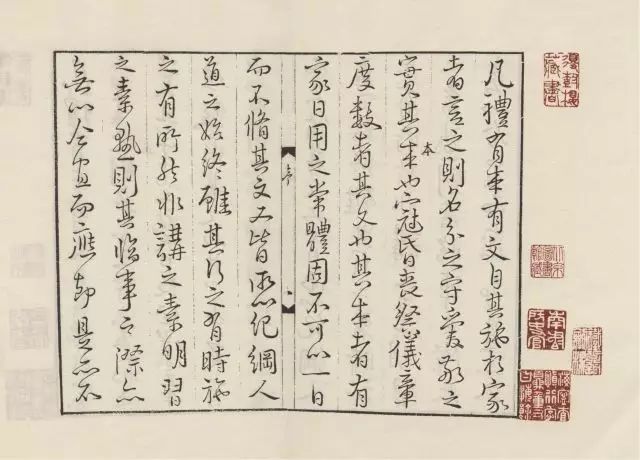 凡禮有本有文自其施於家
者言之則名分之守愛敬之
實其本也冠昏喪祭儀章
本
度數者其文也其本者有
家日用之常體固不可以一日
序
而不脩其文又皆所以紀綱人
道之始終雖其行之有時施
之有所然非講之素明習
之素熟則其臨事之際亦
無以合宜而應節是亦不